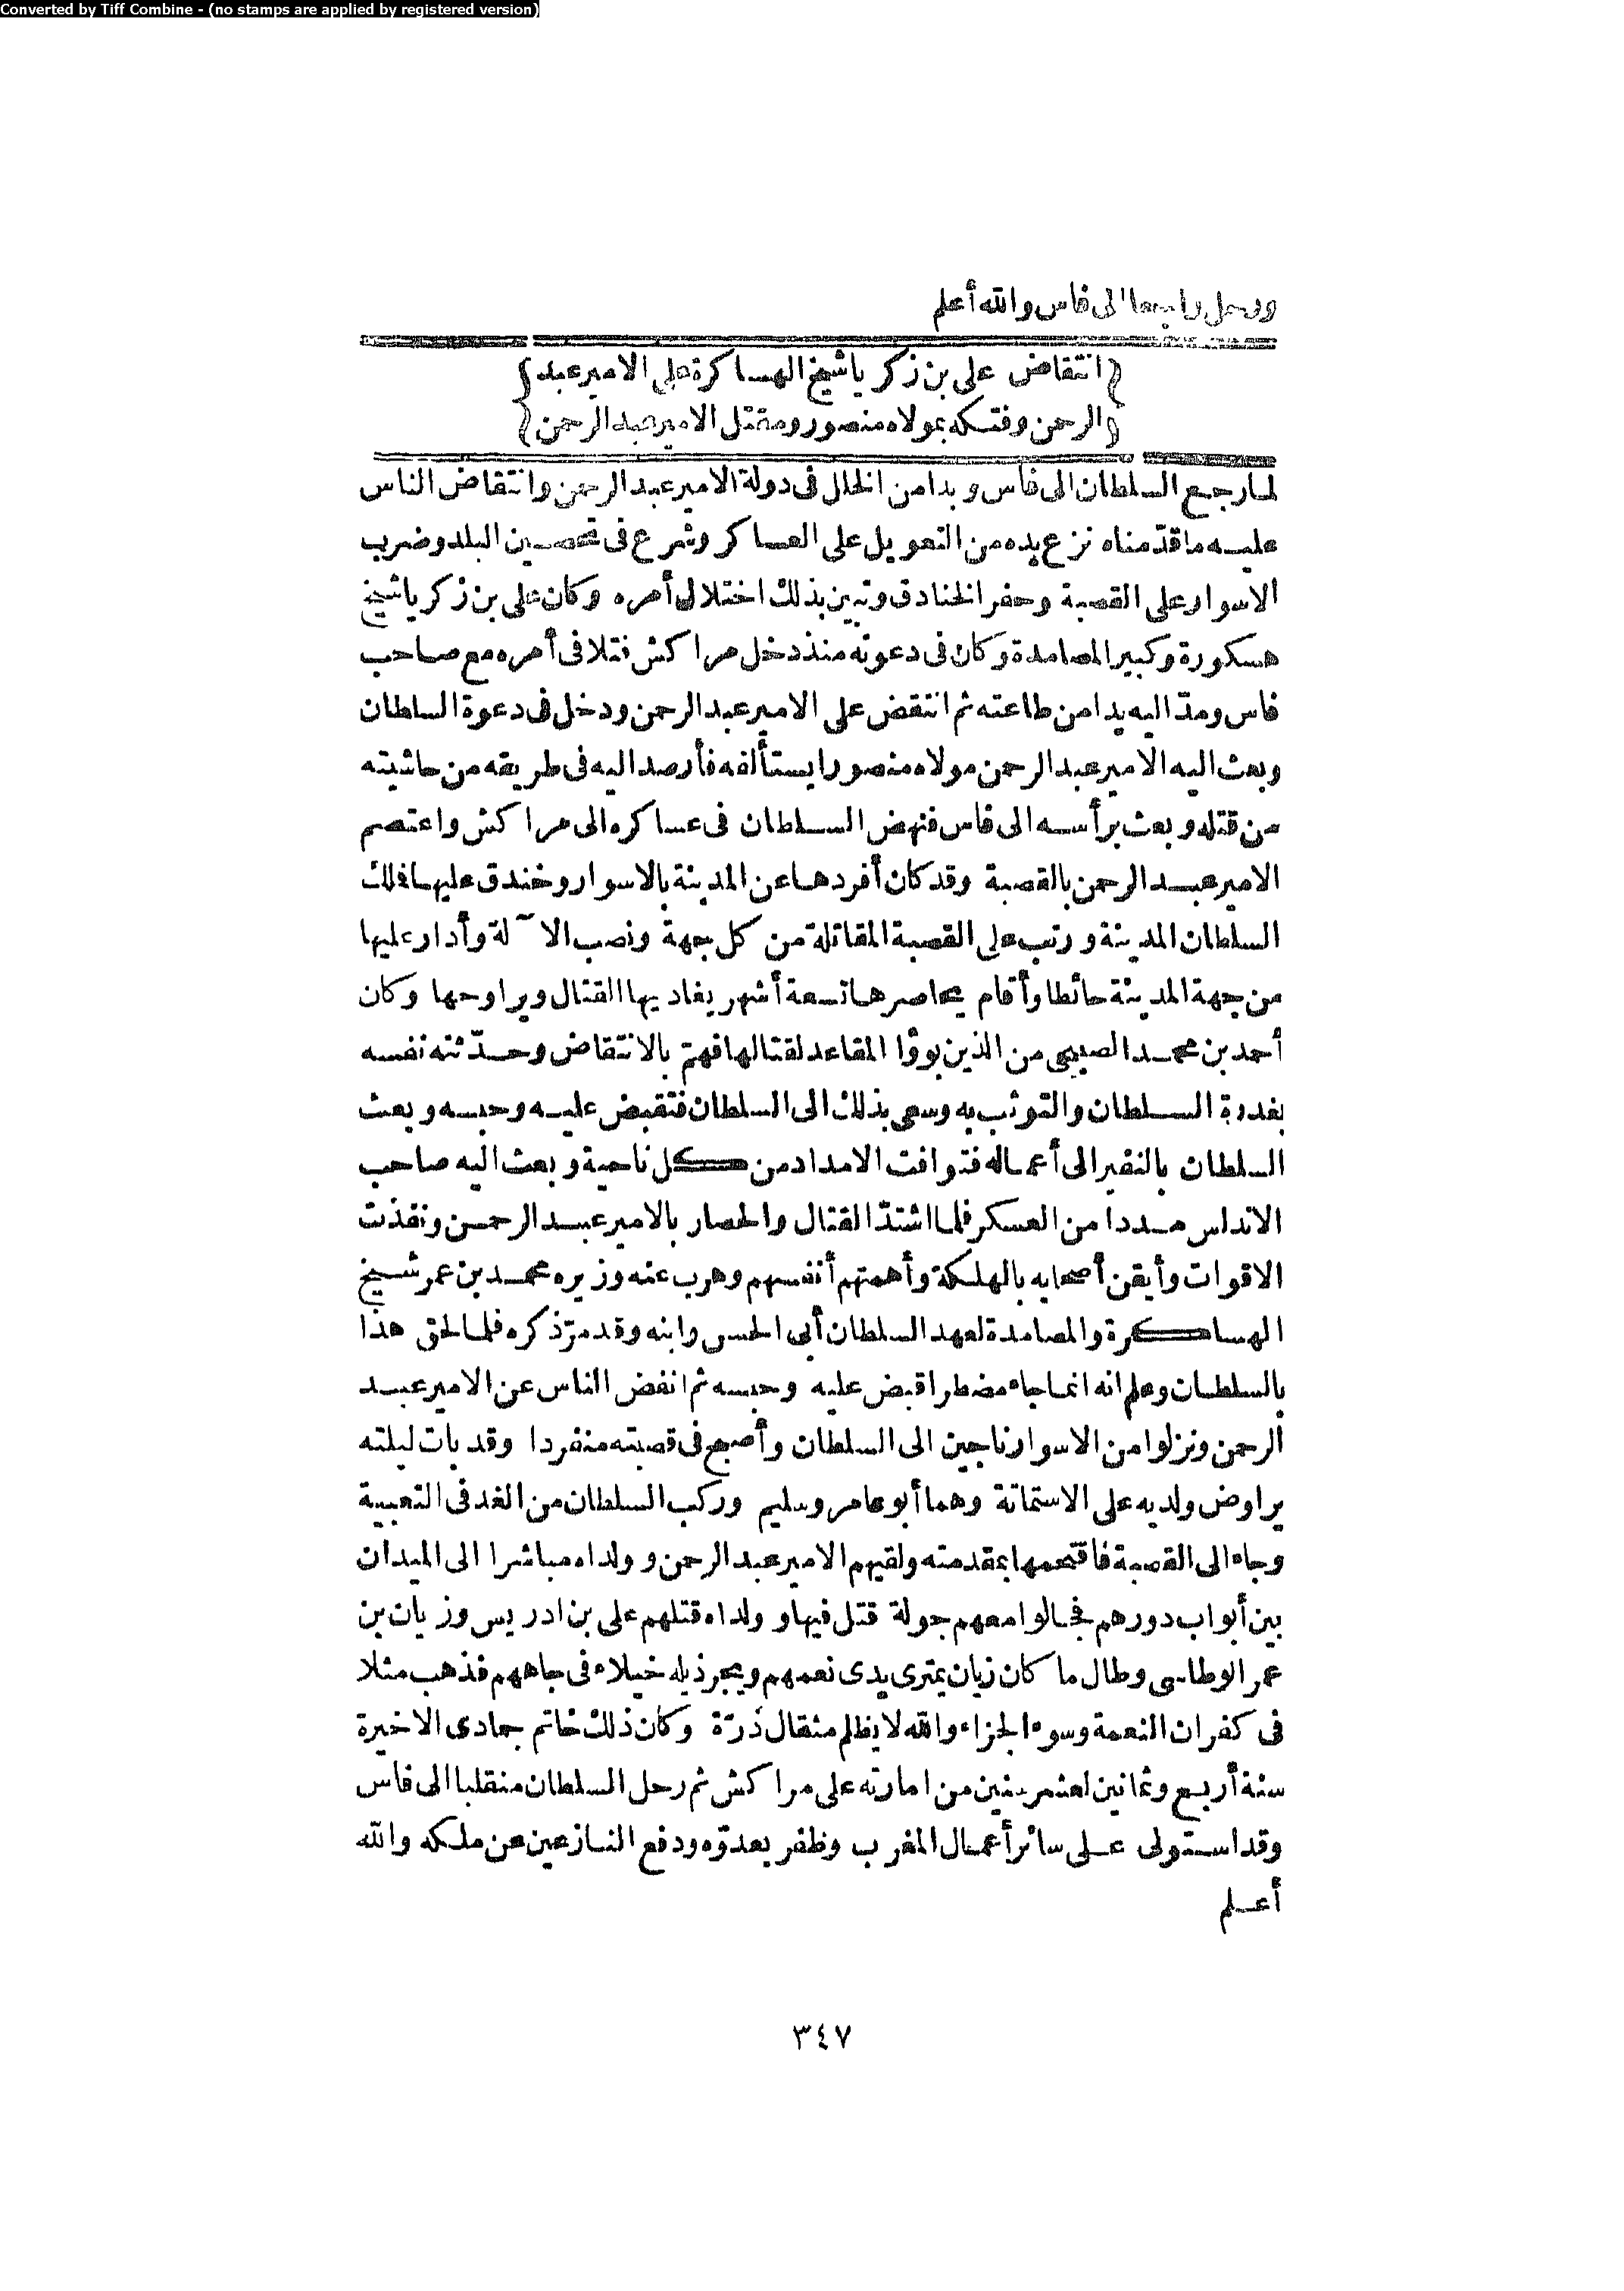 Converted by Tiff Combine - (no stamps are applied by registered version)
ورحل راجعا الى فاس والله أعلم
{انتقاض على بن زكريا شيخ الهساكرة على الامير عبد}
{الرحمن وفتكه بمولاه منصور ومقتل الامير عبد الرحمن}
لما رجع السلطان الى فاس وبدا من الخلل فى دولة الامير عبد الرحمن وانتقاض الناس
عليه ما قدّمناه نزع يده من التعويل على العساكر وشرع فى تحصين البلد وضرب
الاسوار على القصبة وحفر الخنادق وتبين بذلك اختلال أمره وكان على بن زكريا شيخ
هسكورة وكبير المصامدة وكان فى دعوته منذ دخل مراكش فتلافى أمره مع صاحب
فاس ومدّ اليه يدا من طاعته ثم انتقض على الامير عبد الرحمن ودخل فى دعوة السلطان
وبعث اليه الامير عبد الرحمن مولاه منصورا يستألفه فأرصد اليه فى طريقه من حاشيته
من قتله وبعث برأسه الى فاس فنهض السلطان فى عساكره الى مراكش واعتصم
الامير عبد الرحمن بالقصبة وقد كان أفردها عن المدينة بالاسوار وخندق عليها فملك
السلطان المدينة ورتب على القصبة المقاتلة من كل جهة ونصب الآلة وأدار عليها
من جهة المدينة حائطا وأقام يحاصرها تسعة أشهر يغاديها القتال ويراوحها وكان
أحمد بن محمد الصبيحى من الذين بوؤا المقاعد لقتالها فهمّ بالانتقاض وحدّثته نفسه
بغدرة السلطان والتوثب به وسعى بذلك الى السلطان فتقبض عليه وحبسه وبعث
السلطان بالنفير الى أعماله فتوافت الامداد من كل ناحية وبعث اليه صاحب
الاندلس مددا من العسكر فلما اشتدّ القتال والحصار بالامير عبد الرحمن ونفذت
الاقوات وأيقن أصحابه بالهلكة وأهمتهم أنفسهم وهرب عنه وزيره محمد بن عمر شيخ
الهساكرة والمصامدة لعهد السلطان أبى الحسن وابنه وقد مرّ ذكره فلما لحق هذا
بالسلطان وعلم انه انما جاء مضطرا قبض عليه وحبسه ثم انفض الناس عن الامير عبد
الرحمن ونزلوا من الاسوار ناجين الى السلطان وأصبح فى قصبته منفردا وقد بات ليلته
يراوض ولديه على الاستماتة وهما أبو عامر وسليم وركب السلطان من الغد فى التعبية
وجاء الى القصبة فاقتحمها بمقدمته ولقيهم الامير عبد الرحمن وولداه مباشرا الى الميدان
بين أبواب دورهم فجالوا معهم جولة قتل فيها وولداه قتلهم على بن ادريس وزيان بن
عمر الوطاسى وطال ما كان زيان يمترى يدى نعمهم ويجر ذيله خيلاء فى جاههم فذهب مثلا
فى كفران النعمة وسوء الجزاء والله لا يظلم مثقال ذرّة وكان ذلك خاتم جمادى الاخيرة
سنة أربع وثمانين لعشر سنين من امارته على مراكش ثم رحل السلطان منقلبا الى فاس
وقد استولى على سائر أعمال المغرب وظفر بعدوّه ودفع النازعين عن ملكه والله
أعلم
٣٤٧